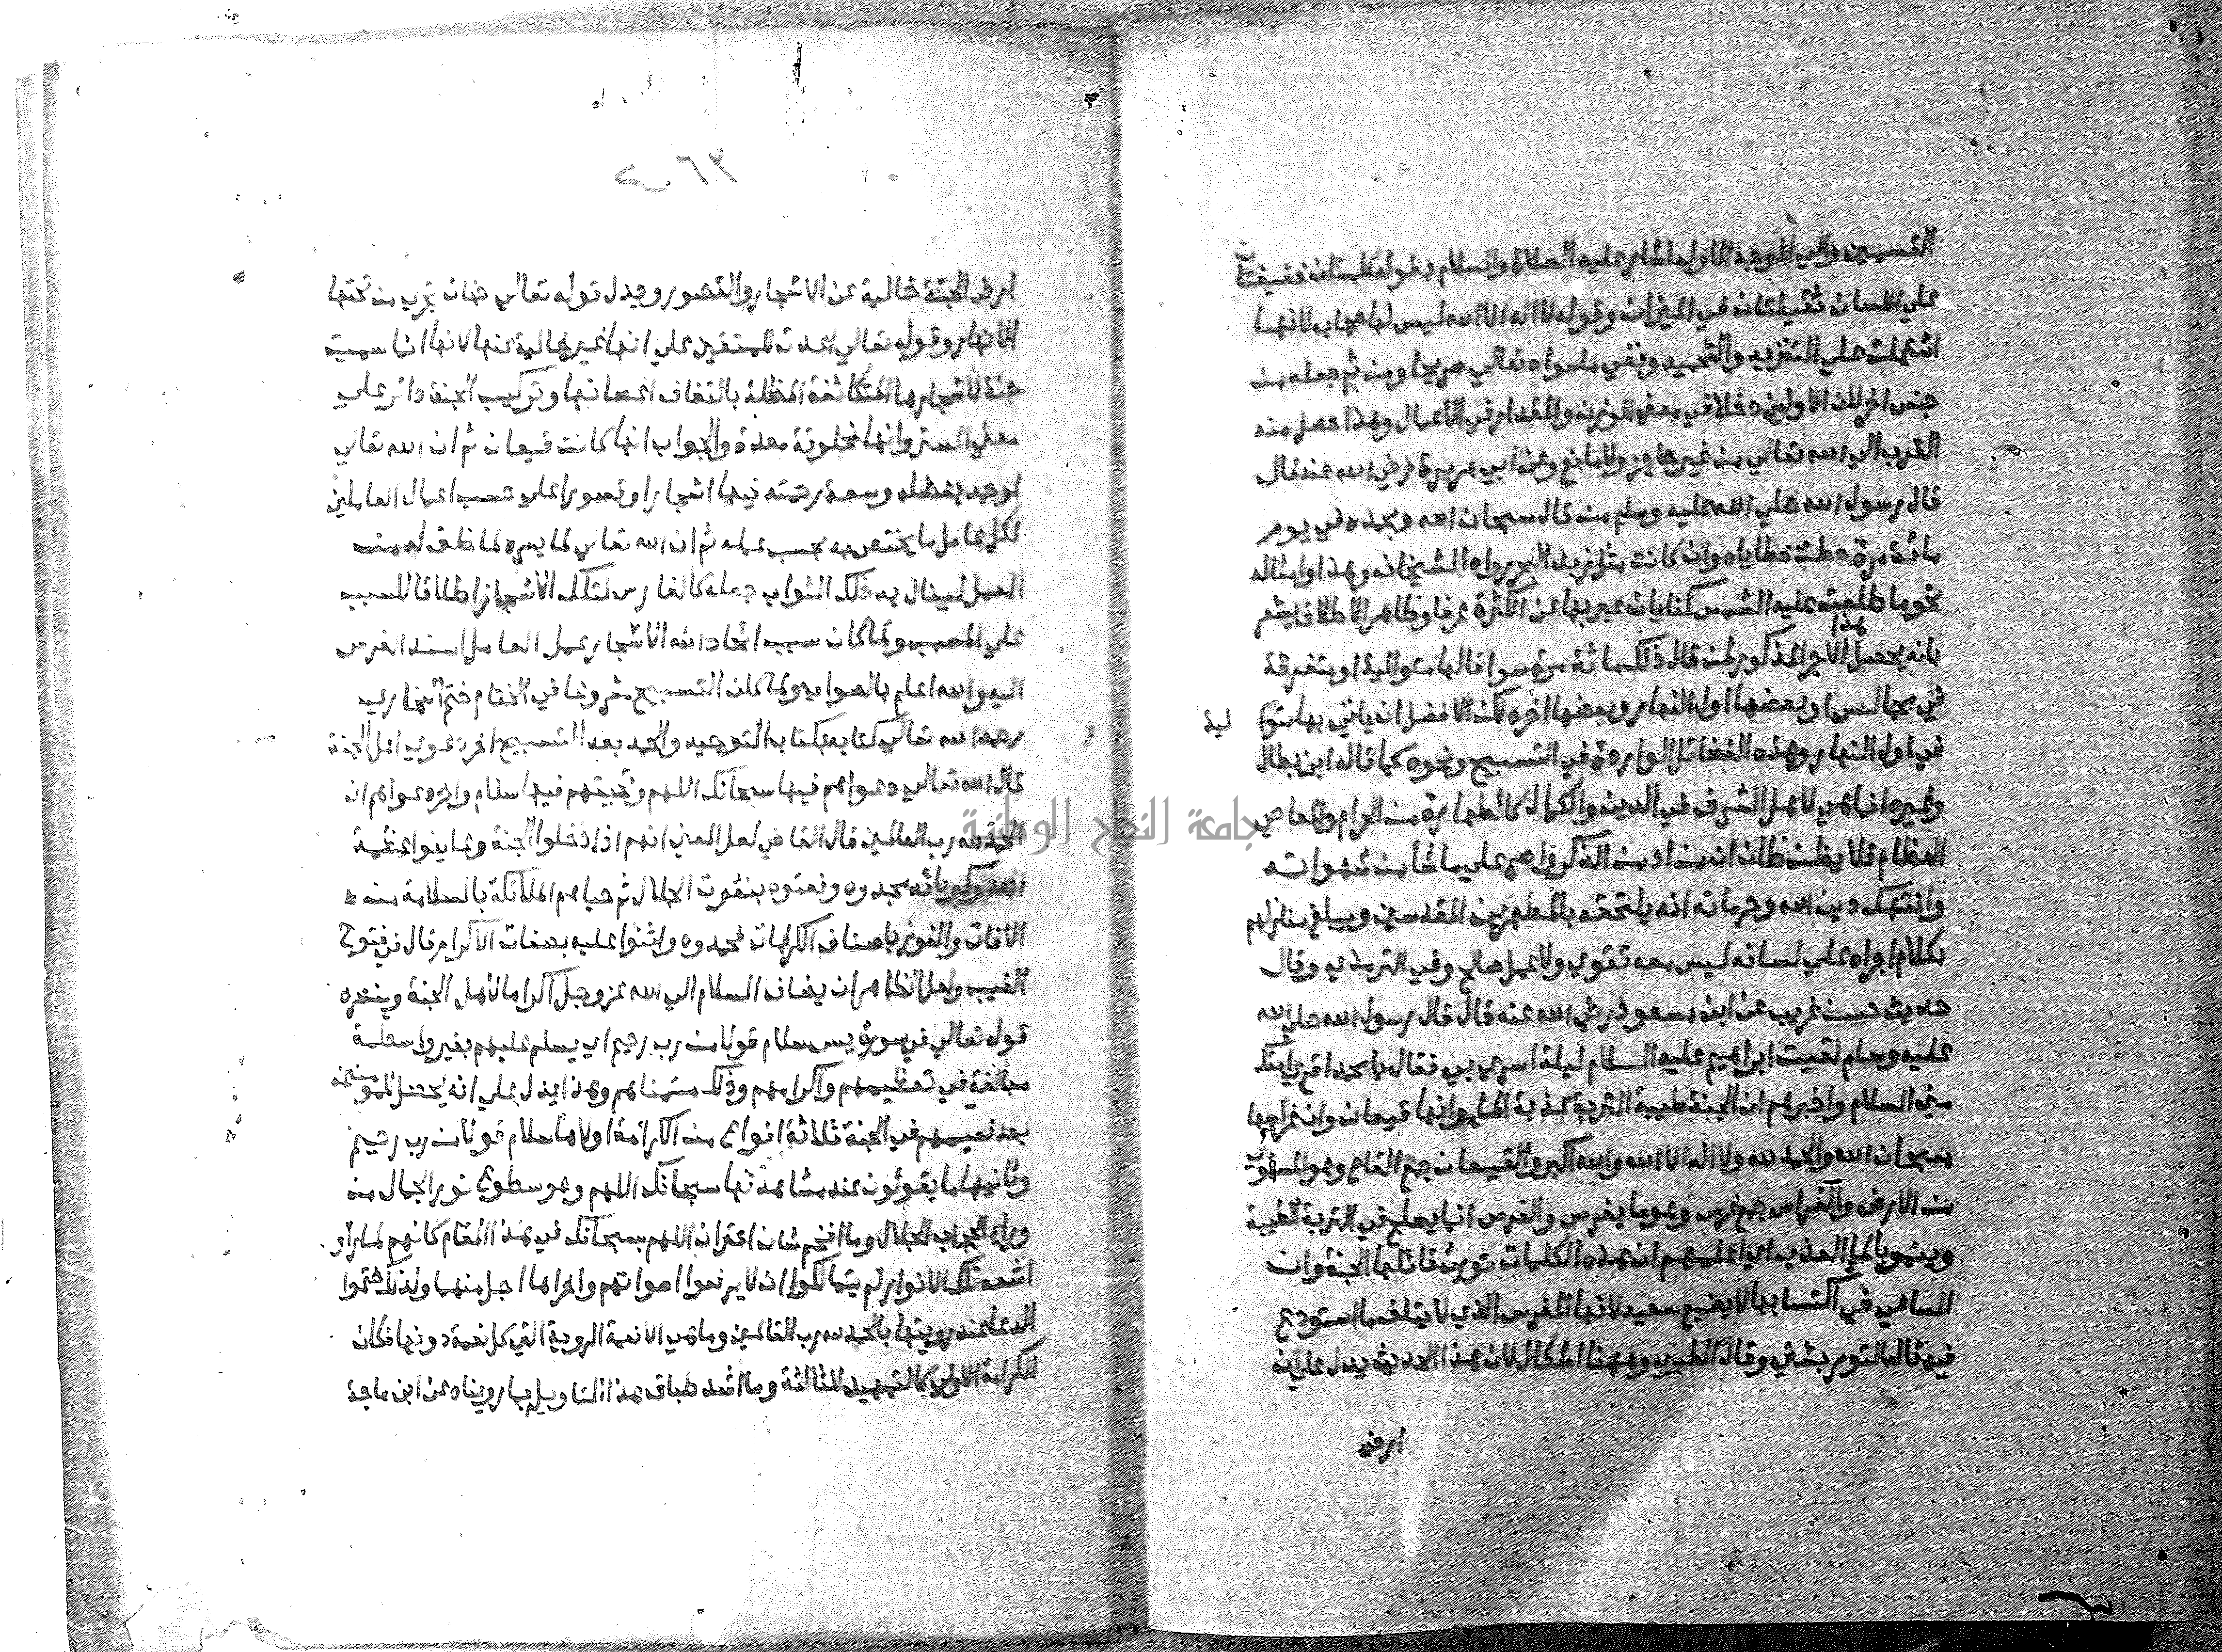 القسمين والي الموجب الاول اشار عليه الصلاة والسلام بقوله كلمتان خفيفتان
علي اللسان ثقيلتان في الميزان وقوله لا اله الا الله ليس لها حجاب لانها
اشتملت علي التنزيه والتحميد ونفي ما سواه تعالي صريحا ومن ثم جعله من
جنس اخر لان الاولين دخلا في معني الوزن والمقدار في الاعمال وهذا حصل منه
القرب الي الله تعالي من غير حاجز ولا مانع وعن ابي هريرة رضي الله عنه قال
قال رسول الله صلي الله عليه وسلم من قال سبحان الله وبحمده في يوم
مائة مرة حطت خطاياه وان كانت مثل زبد البحر رواه الشيخان وهذا وامثاله
نحو ما طلعت عليه الشمس كنايات عبر بها عن الكثرة عرفا وظاهر الاطلاق يشعر
بانه يحصل هذا الاجر المذكور لمن قال ذلك مائة مرة سوا قالها متوالية او متفرقة
في مجالس او بعضها اول النهار وبعضها اخره لكن الافضل ان ياتي بها متوالية
في اول النهار وهذه الفضائل الواردة في التسبيح ونحوه كما قال ابن بطال
وغيره انما هي لاهل الشرف في الدين والكمال كالطهارة من الحرام والمعاصي
العظام فلا يظن ظان ان من ادمن الذكر واصر علي ما شأ من شهواته
وانتهك دين الله وحرماته انه يلتحق بالمطهرين المقدسين ويبلغ منازلهم
بكلام اجراه علي لسانه ليس معه تقوي ولا عمل صالح وفي الترمذي وقال
حديث حسن غريب عن ابن مسعود رضي الله عنه قال قال رسول الله صلي الله
عليه وسلم لقيت ابراهيم عليه السلام ليلة اسري بي فقال يا محمد اقرئ امتك
مني السلام واخبرهم ان الجنة طيبة التربة عذبة الماء وانها قيعان وان غراسها
سبحان الله والحمد لله ولا اله الا الله والله اكبر والقيعان جمع القاع وهو المستوي
من الارض والغراس جمع غرس وهو ما يغرس والغرس انما يصلح في التربة الطيبة
وينمو بالماء العذب اي اعلمهم ان هذه الكلمات تورث قائلها الجنة وان
الساعي في اكتسابها لا يضيع سعيه لانها المغرس الذي لا يتلف ما استودع
فيه قاله التوربشتي وقال الطيبي وههنا اشكال لان هذا الحديث يدل علي ان
ارض
٦٣
ارض الجنة خالية عن الاشجار والقصور ويدل قوله تعالي جنات تجري من تحتها
الانهار وقوله تعالي اعدت للمتقين علي انها غير خالية عنها لانها انما سميت
جنة لاشجارها المتكاثفة المظلة بالتفاف اغصانها وتركيب الجنة دائر علي
معني الستر وانها مخلوقة معدة والجواب انها كانت قيعان ثم ان الله تعالي
اوجد بفضله وسعة رحمته فيها اشجارا وقصورا علي حسب اعمال العاملين
لكل عامل ما يختص به بحسب عمله ثم ان الله تعالي لما يسره لما خلق له من
العمل لينال به ذلك الثواب جعله كالغارس لتلك الاشجار اطلاقا للسبب
علي المسبب ولما كان سبب اتحاد الله الاشجار عمل العامل اسند الغرس
اليه والله اعلم بالصواب ولما كان التسبيح مشروعا في الختام ختم البخاري
رحمه الله تعالي كتابه بكتاب التوحيد والحمد بعد التسبيح اخر دعوي اهل الجنة
قال الله تعالي دعواهم فيها سبحانك اللهم وتحيتهم فيها سلام واخر دعواهم ان
الحمد لله رب العالمين قال القاضي لعل المعني انهم اذا دخلوا الجنة وعاينوا عظمة
الله وكبريائه مجدوه ونعتوه بنعوت الجلال ثم حياهم الملائكة بالسلامة من
الافات والفوز باصناف الكرامات فحمدوه واثنوا عليه بصفات الاكرام قال في فتوح
الغيب ولعل الظاهر ان يضاف السلام الي الله عز وجل اكراما لاهل الجنة وينصره
قوله تعالي في سورة يس سلام قولا من رب رحيم اي يسلم عليهم بغير واسطة
مبالغة في تعظيمهم واكرامهم وذلك متمناهم وهذا يدل علي انه يحصل للمؤمنين
بعد نعيمهم في الجنة ثلاثة انواع من الكرامة اولاها سلام قولا من رب رحيم
وثانيها ما يقولون عند مشاهدتها سبحانك اللهم وهو سطوع نور الجمال من
وراء الحجاب الجلال وما افخم شان اقتران اللهم بسبحانك في هذا المقام كانهم لما راوا
اشعة تلك الانوار لم يتمالكوا ان لا يرفعوا اصواتهم واخراها اجل منهما ولذلك ختموا
الدعا عند رويتها بالحمد لله رب العالمين وما هي الا نعمة الروية التي كل نعمة دونها فكان
الكرامة الاولي كالتمهيد للثالثة وما اشد طباق هذا التاويل بما رويناه عن ابن ماجة
جامعة النجاح الوطنية